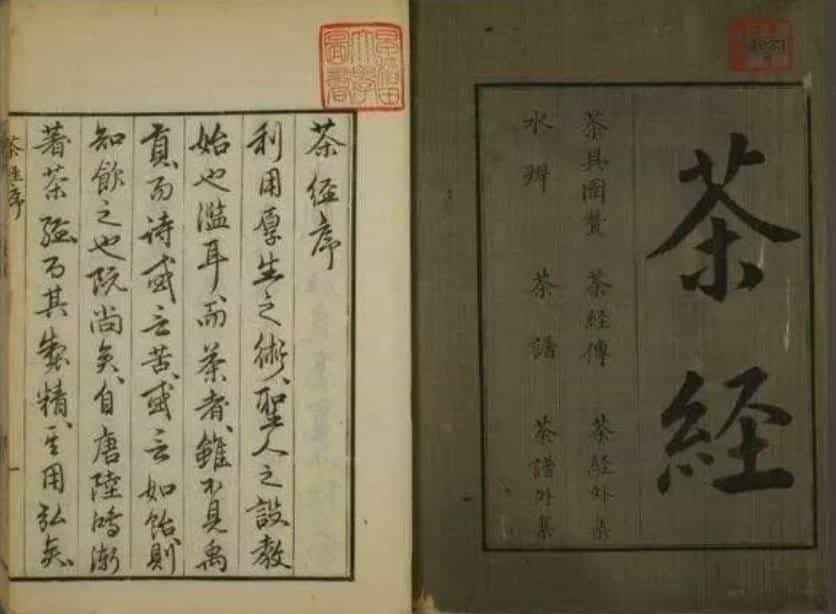 茶経
茶具圖賛 茶経傳 茶経外集
水辨 茶譜 茶譜外集
早稲田
大學
圖書
茶経序
利用厚生之術、聖人之設教
始也濫耳、而茶者、雖不見禹
貢、而詩或云苦、或云如飴、則
知飲之也既尚矣、自唐陸鴻漸
著茶経而其製精、其用弘矣、
茶経序